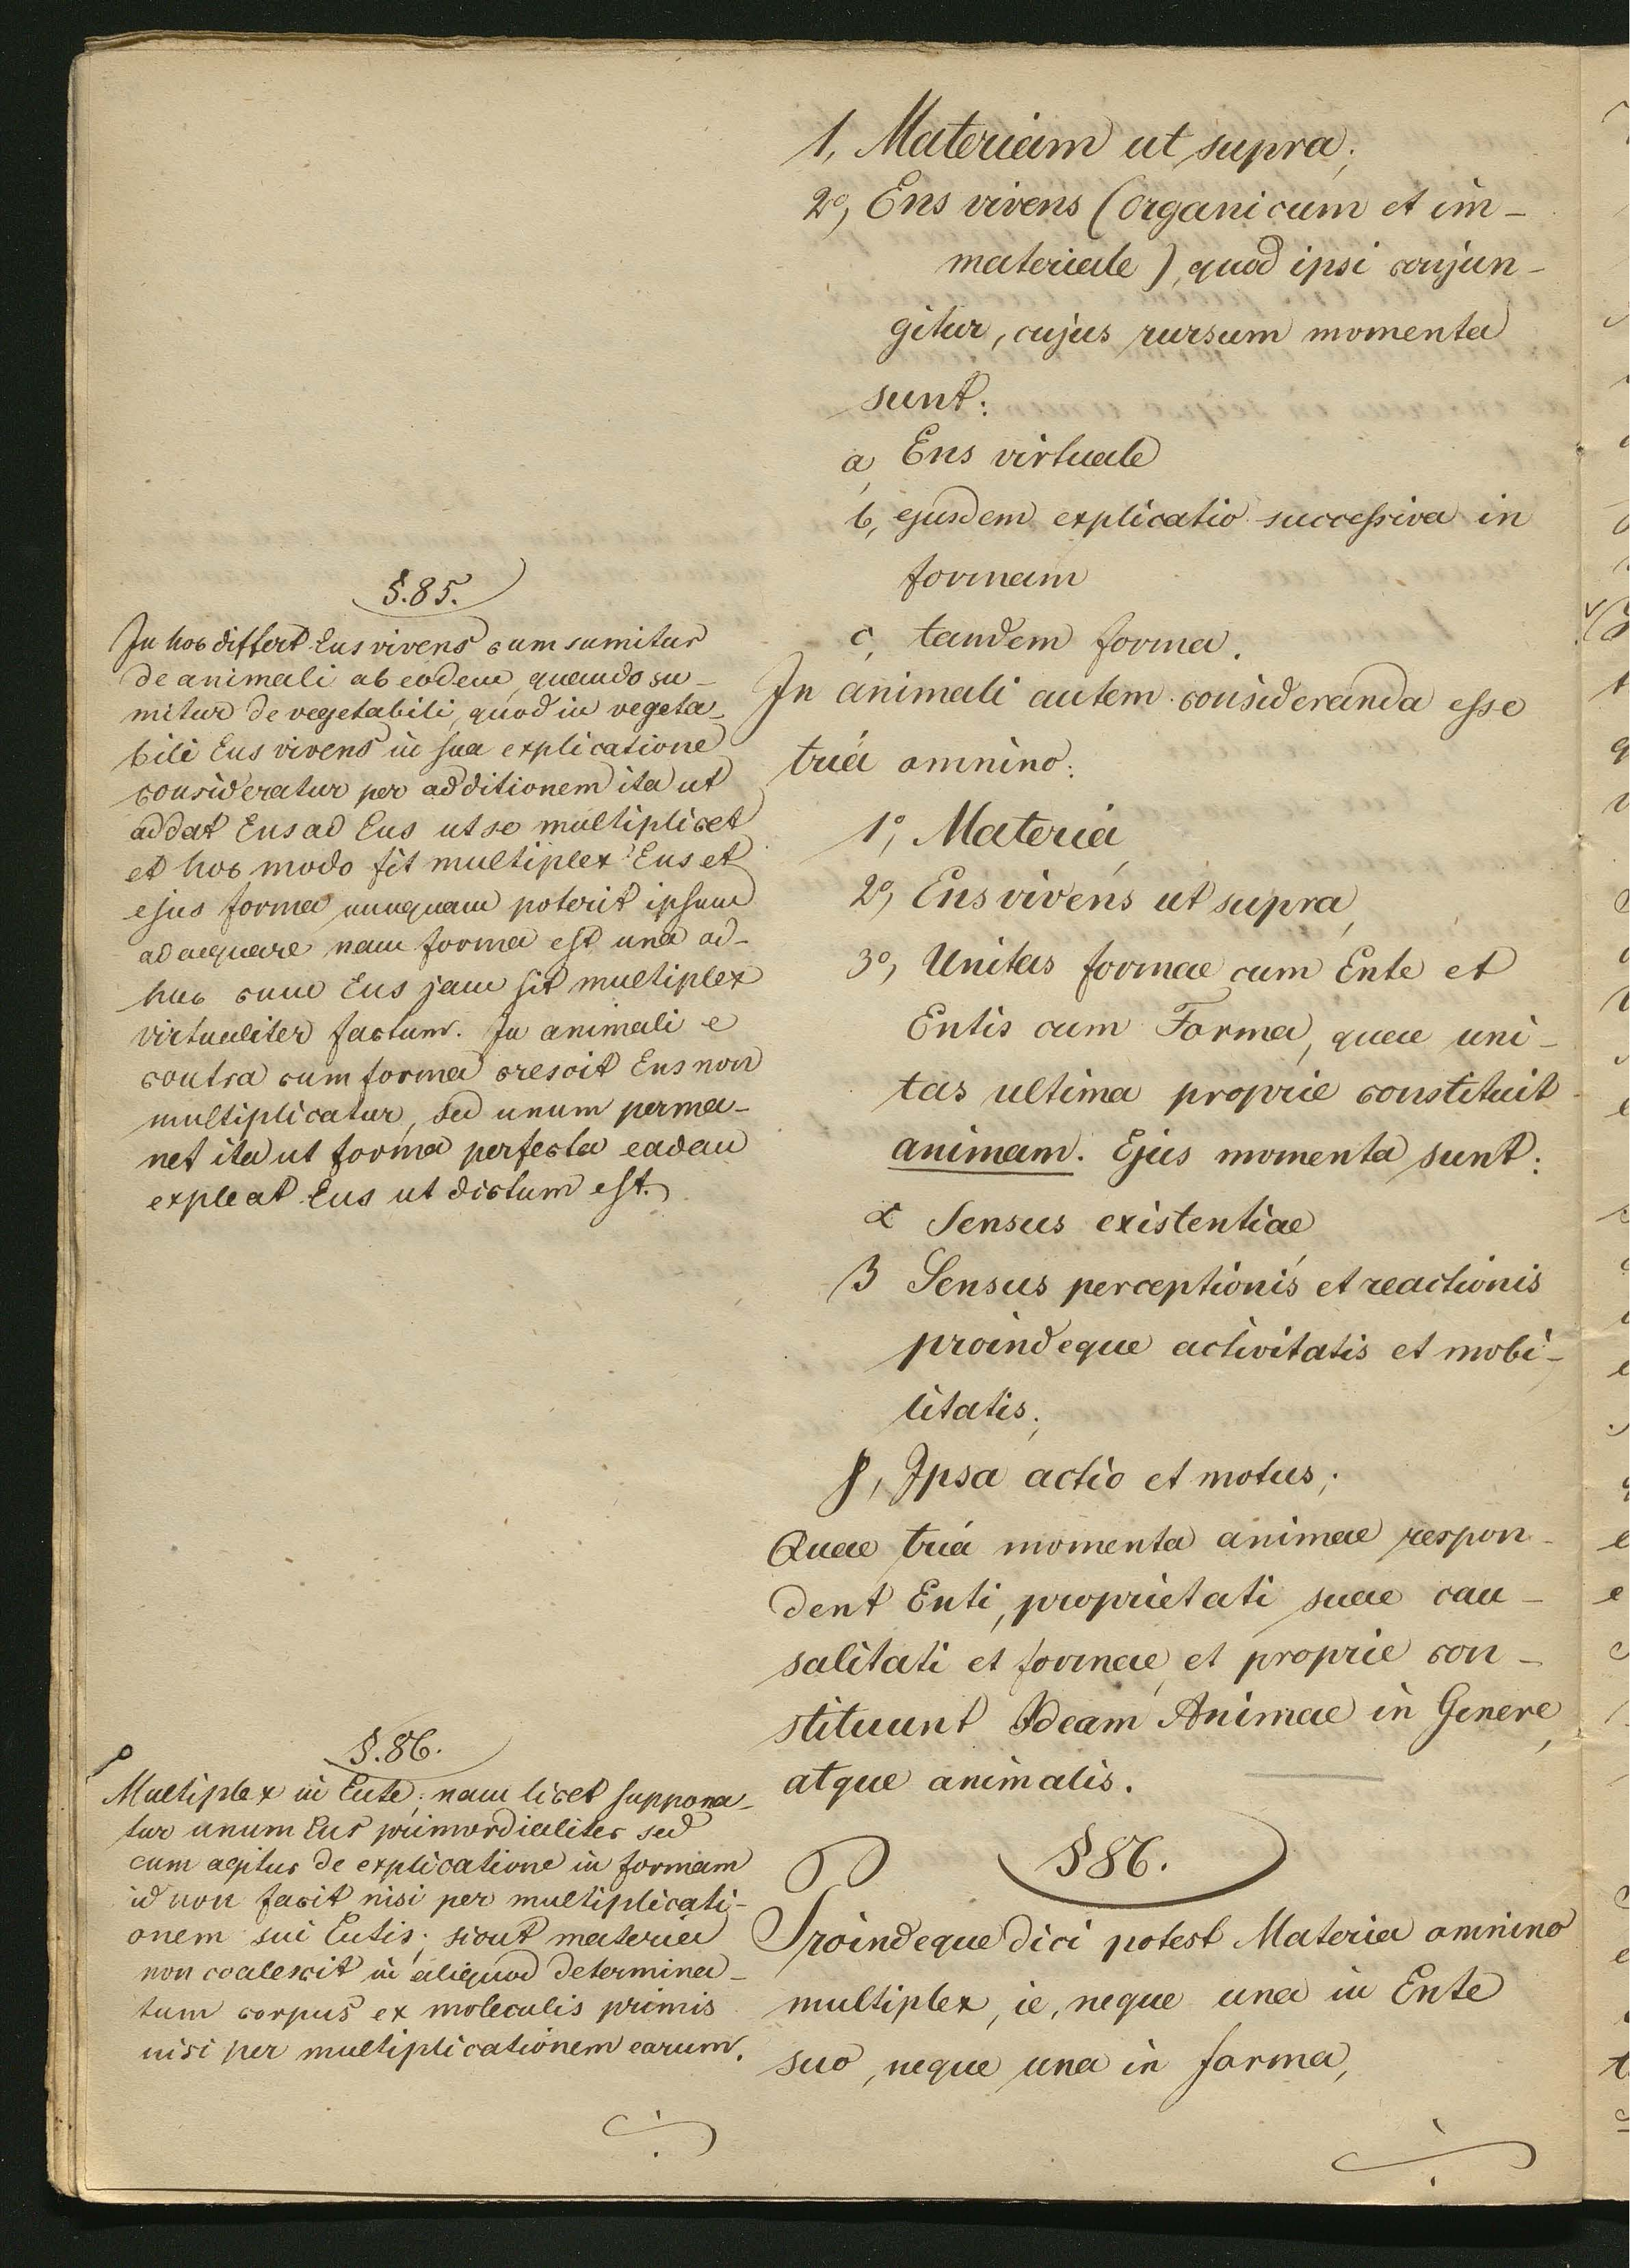 1, Materiam ut supra;
2º, Ens vivens (organicum et im-
materiale), quod ipsi conjun-
gitur, cujus rursum momenta
sunt:
a, Ens virtuale
b, ejusdem explicatio successiva in
formam
c, tandem forma.
In animali autem consideranda esse
tria omnino:
1º, Materia,
2º, Ens vivens ut supra,
3º, Unitas formae cum Ente et
Entis cum Forma, quae uni-
tas ultima proprie constituit
animam. Ejus momenta sunt:
α Sensus existentiae
β Sensus perceptionis et reactionis
proindeque activitatis et mobi-
litatis;
γ, Ipsa actio et motus;
Quae tria momenta animae respon-
dent Enti, proprietati suae cau-
salitati et formae, et proprie con-
stituunt Ideam Animae in Genere,
atque animalis.
§ 86.
Proindeque dici potest Materia omnino
multiplex, ie, neque una in Ente
suo, neque una in forma,
§. 85.
In hoc differt Ens vivens cum sumitur
de animali ab eodem, quando su-
mitur de vegetabili, quod in vegeta-
bili Ens vivens in sua explicatione
consideratur per additionem ita ut
addat Ens ad Ens ut se multiplicet
et hoc modo fit multiplex Ens et
ejus forma nunquam poterit ipsum
adaequare nam forma est una ad-
huc cum Ens jam sit multiplex
virtualiter factum. In animali e
contra cum forma crescit Ens non
multiplicatur, sed unum perma-
net ita ut forma perfecta eadem
expleat Ens ut dictum est.
§. 86.
Multiplex in Ente; nam licet suppona-
tur unum Ens primordialiter sed
cum agitur de explicatione in formam
id non facit nisi per multiplicati-
onem sui Entis; sicut materia
non coalescit in aliquod determina-
tum corpus ex moleculis primis
nisi per multiplicationem earum.